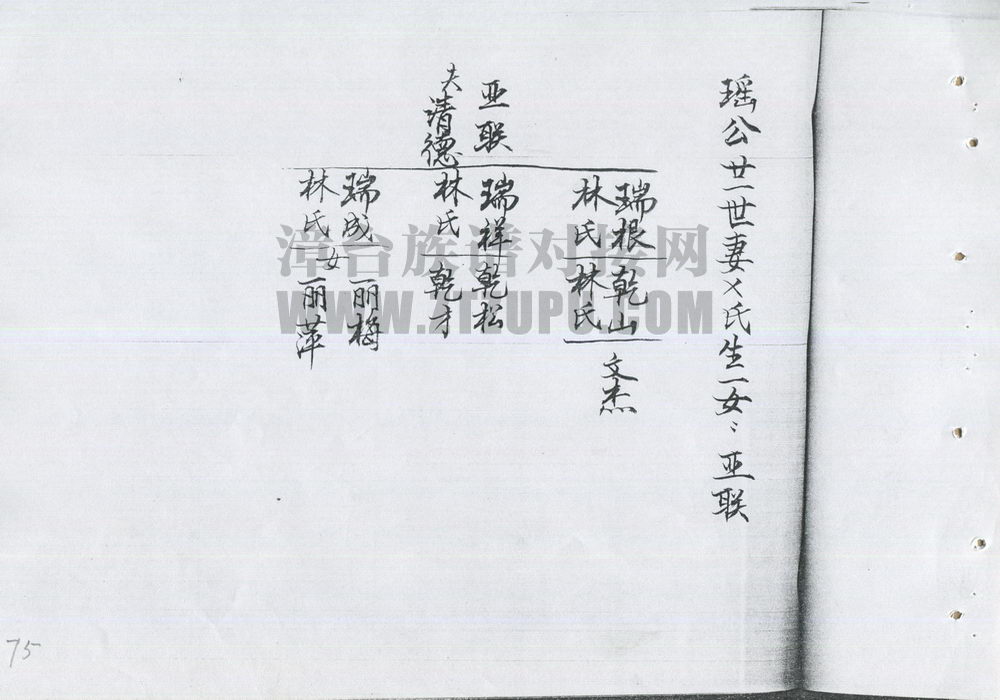 瑶公廿一世妻乂氏生一女：亚联
亚联
夫清德
瑞根
林氏
乾山
林氏
文杰
瑞祥
林氏
乾松
乾才
瑞成
林氏
女
丽梅
丽萍
漳台族谱对接网
WWW.ZTZUPU.COM
75